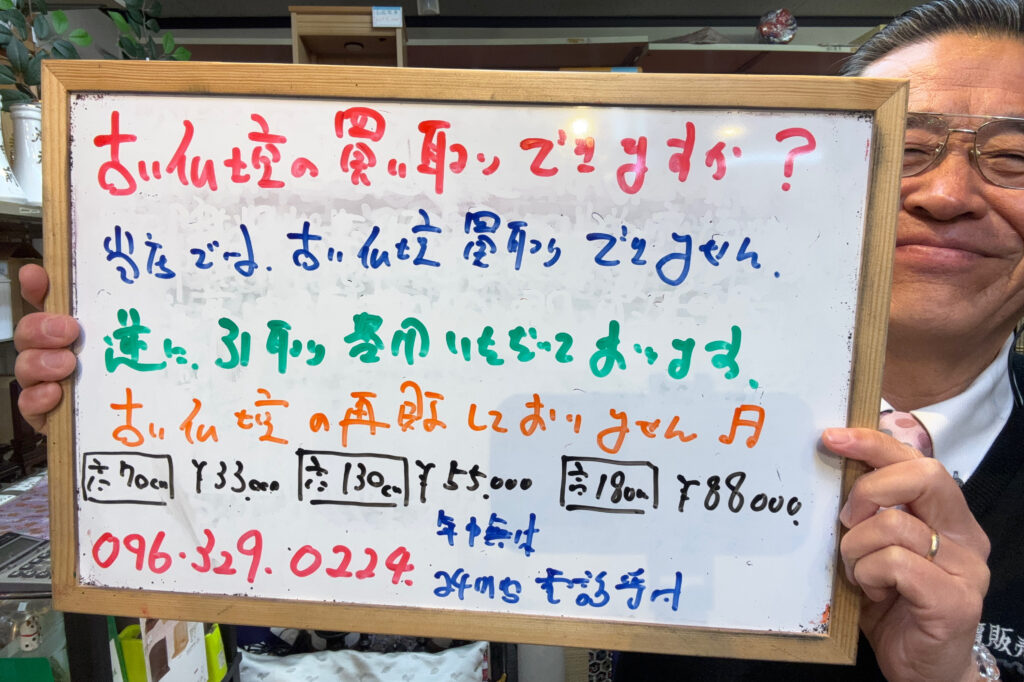 古い仏壇の買い取りできますか?
当店では、古い仏壇買取りできません。
逆に、引取り費用いただいております。
古い仏壇の再販しておりません
高70cm ¥33.000 高130cm ¥55.000 高180cm ¥88000.
096.329.0224.
年中無休
24時間電話受付
販売